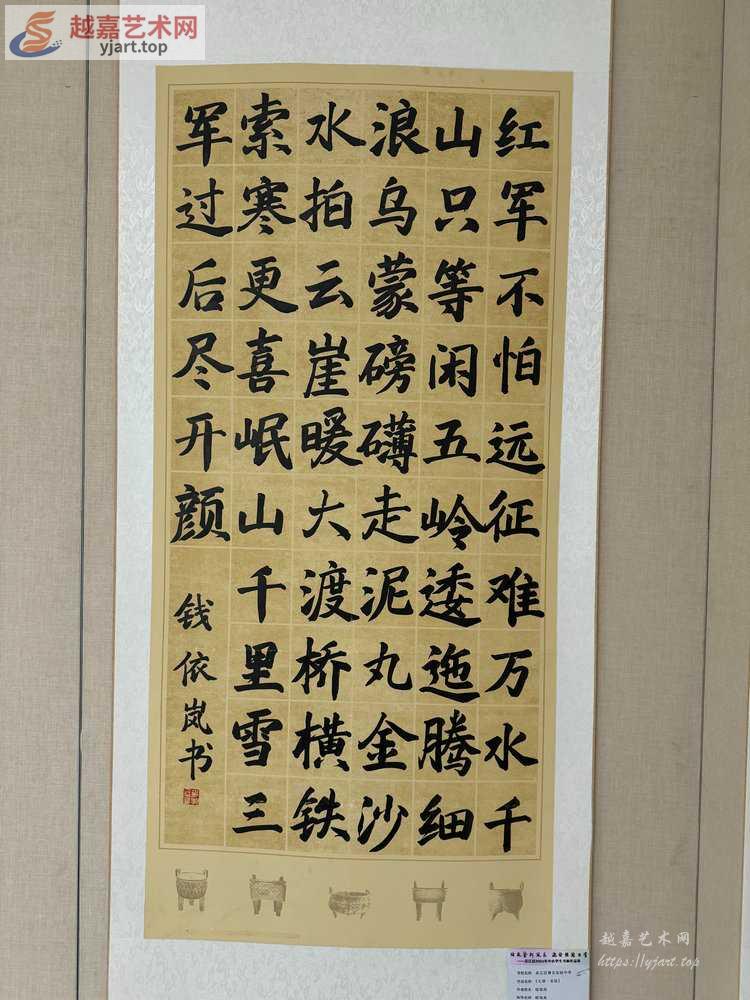 越嘉艺术网
yjart.top
红军不怕远征难万水千
山只等闲五岭逶迤腾细
浪乌蒙磅礴走泥丸金沙
水拍云崖暖大渡桥横铁
索寒更喜岷山千里雪三
军过后尽开颜
钱依岚书
越嘉艺术网
https://yjart.top